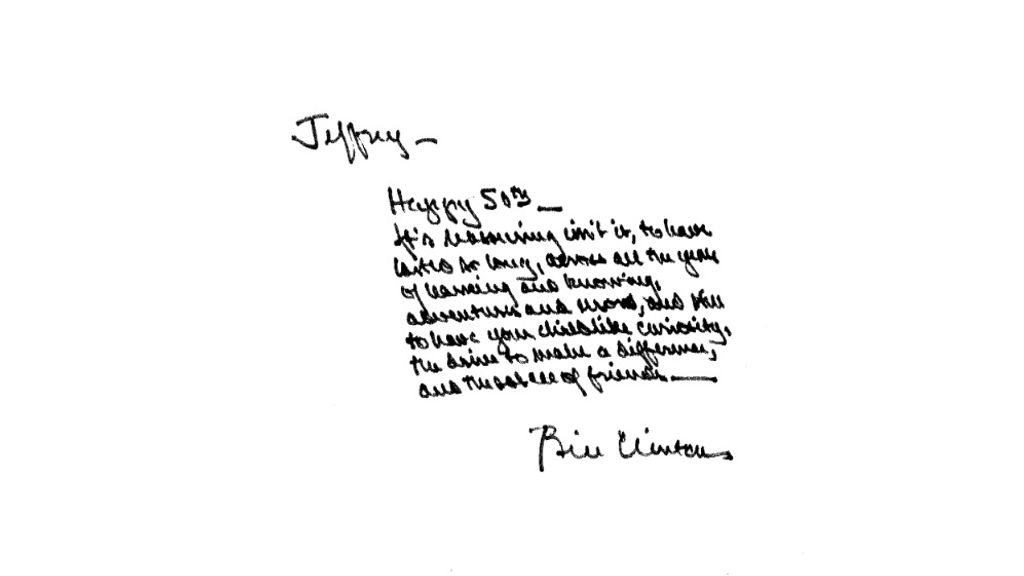 Jeffrey —
Happy 50th —
It's reassuring isn't it, to have
lasted as long, across all the years
of learning and knowing,
adventures and and still
to have your childlike curiosity,
the drive to make a difference,
and the solace of friends. —
Bill Clinton